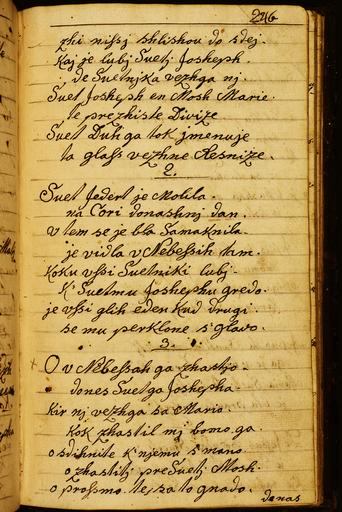 246
zhi nissj shlishou do sdej
kaj je lubj Suetj Josheph.
de Suetnjka vezhga nj.
Suet Josheph en Mosh Marie.
te prezhiste Divize
Suet Duh ga tok jmenuje
ta glass vezhne Resnize.
2.
Suet Jedert je Molila.
na Cori donashnj dan.
v tem se je bla Samaknila.
je vidla v Nebessih tam.
koku vssi Suetniki lubj.
k' Suetmu Joshephu gredo.
je vssi glih eden knd drugi
se mu perklone s'glavo.
3.
O v Nebessah ga zhasto.
dones Suetga Joshepha.
kir nj vezhga sa Mario.
kok zhastil mj bomo ga.
o sdihnite k'njemu s'mano.
o zhastitj preSuetj Mosh.
o prossmo te sa to gnado.
donas